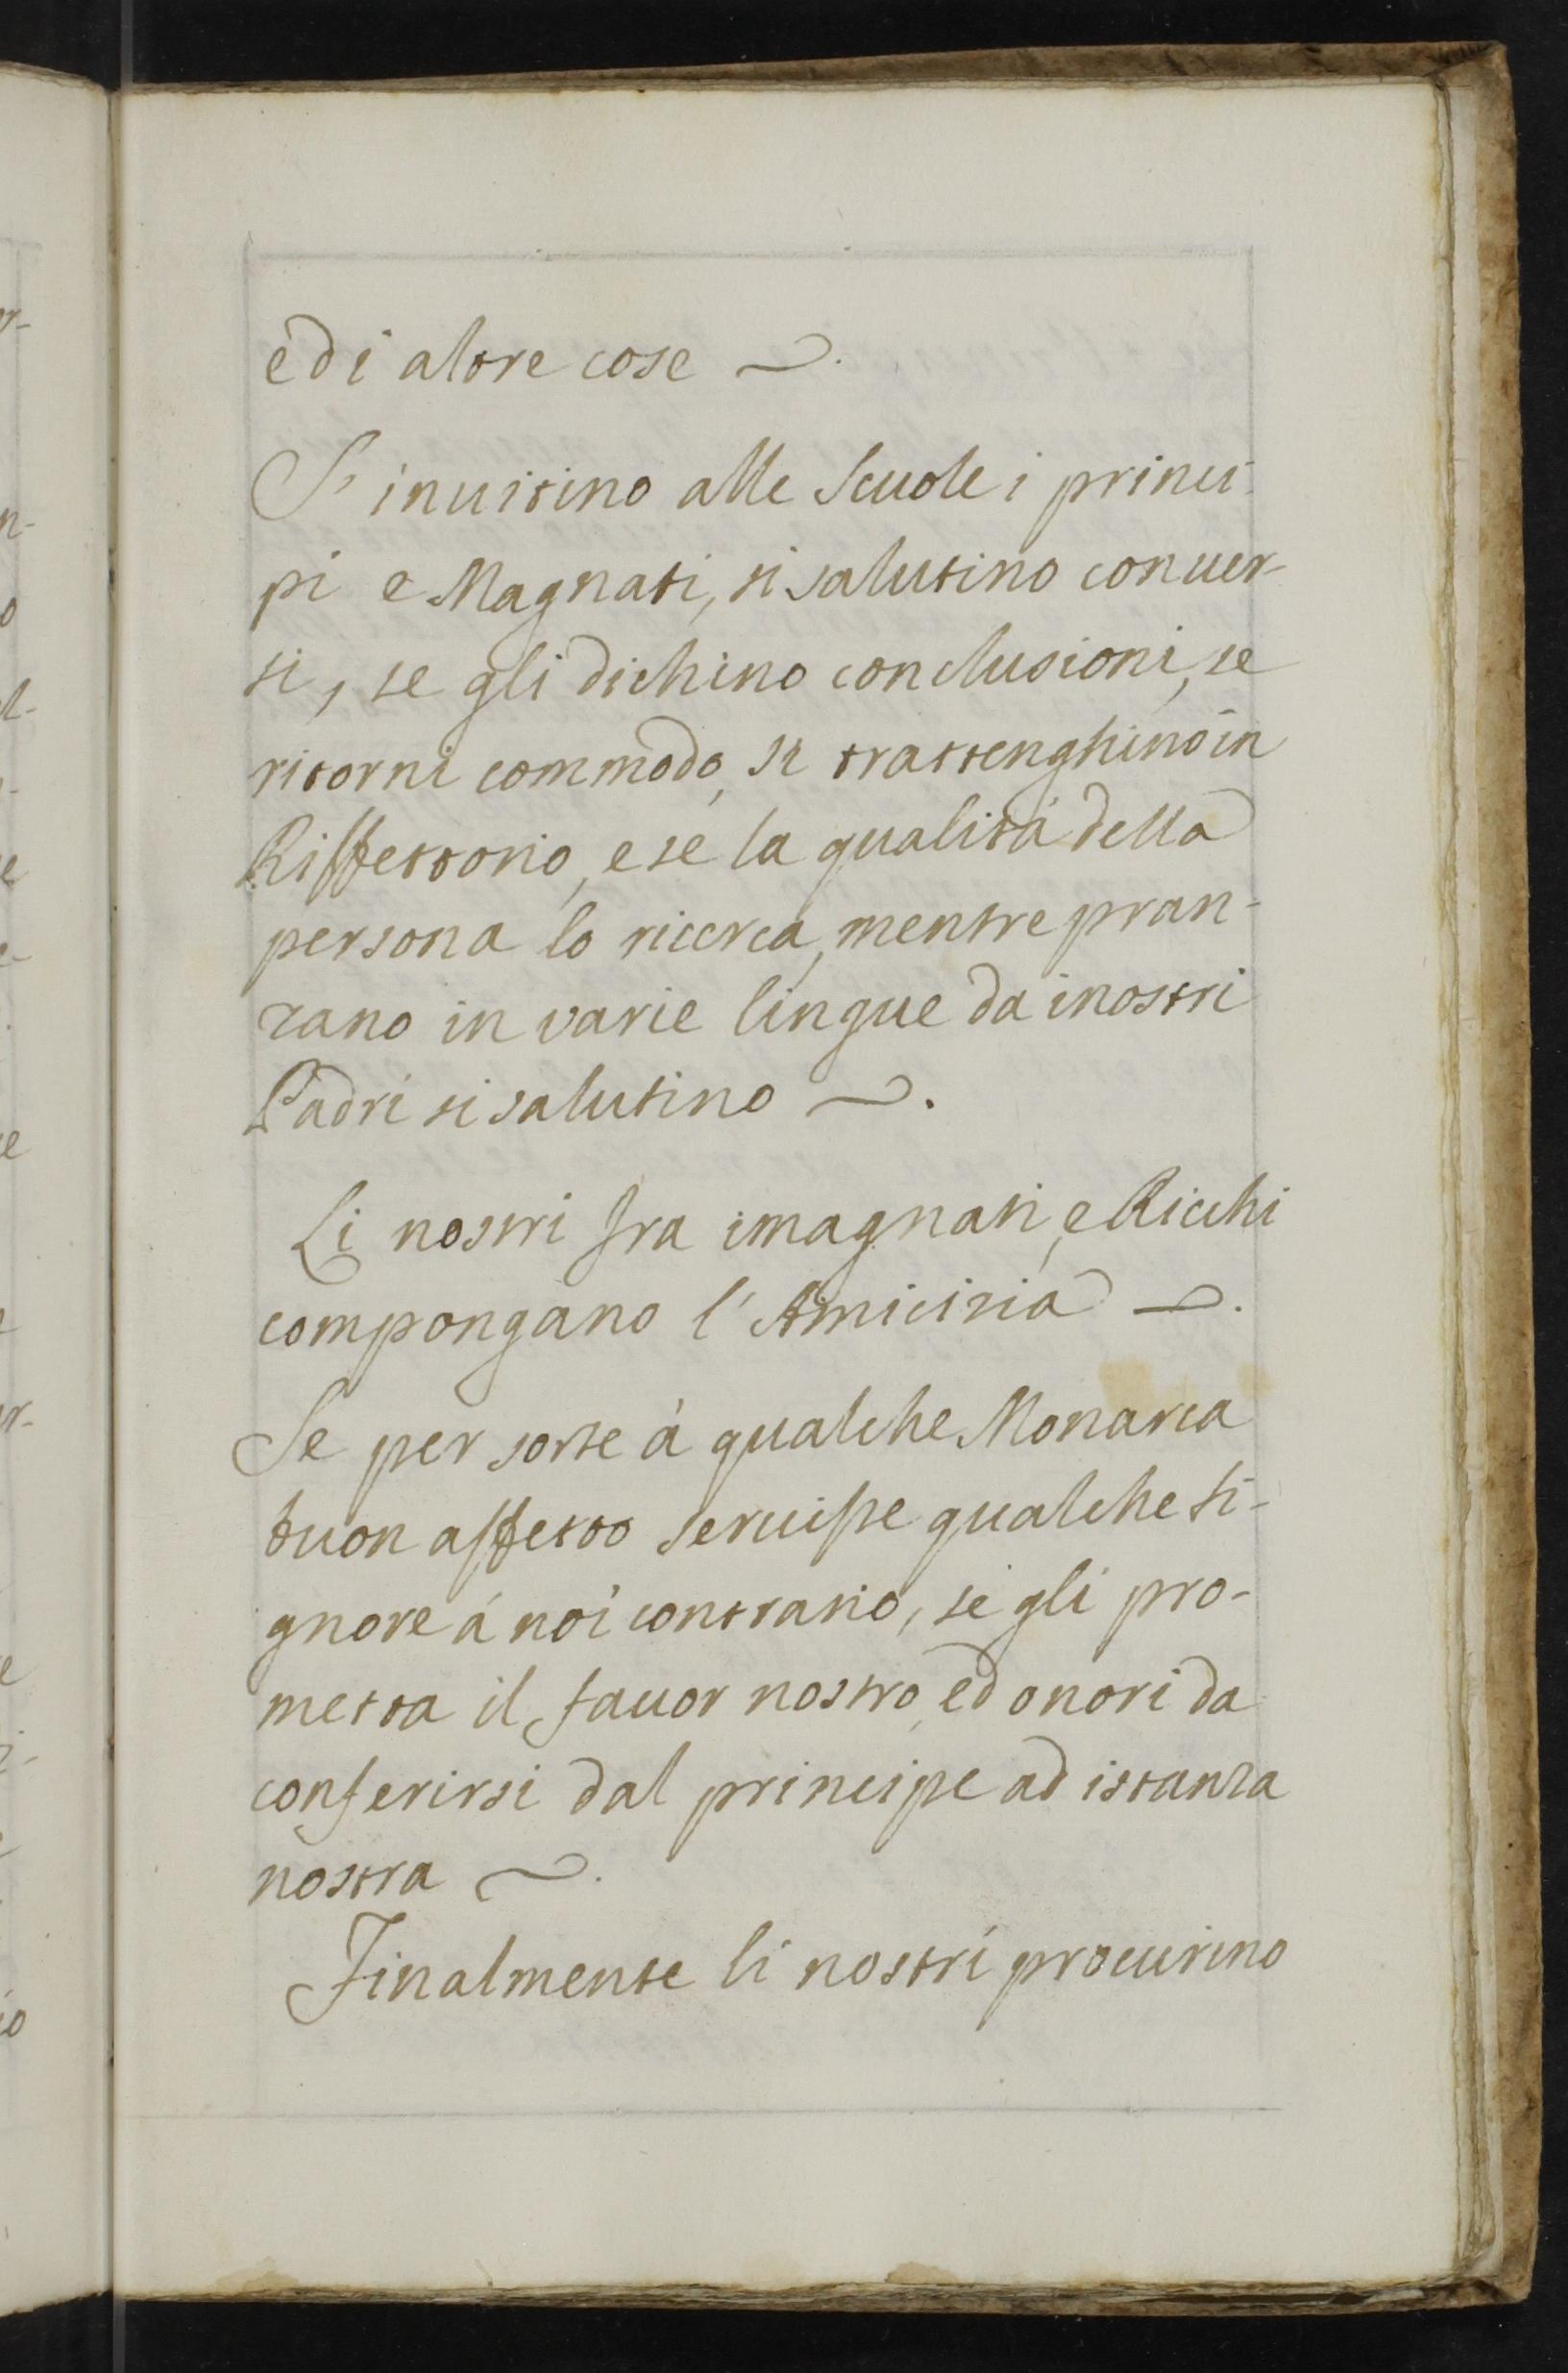 e di altre cose ~.
S'inuitino alle Scuole i princi-
pi e Magnati, si salutino con uer-
si, se gli dichino conclusioni, se
ritorni commodo, si trattenghino in
Riffettorio, e se la qualità della
persona lo ricerca, mentre pran-
zano in varie lingue da i nostri
Padri si salutino ~.
Li nostri fra i magnati, e Ricchi
compongano l'Amicizia ~.
Se per sorte à qualche Monarca
buon affetto seruisse qualche si-
gnore à noi contrario, se gli pro-
metta il fauor nostro, ed onori da
conferirsi dal principe ad istanza
nostra ~.
Finalmente li nostri procurino